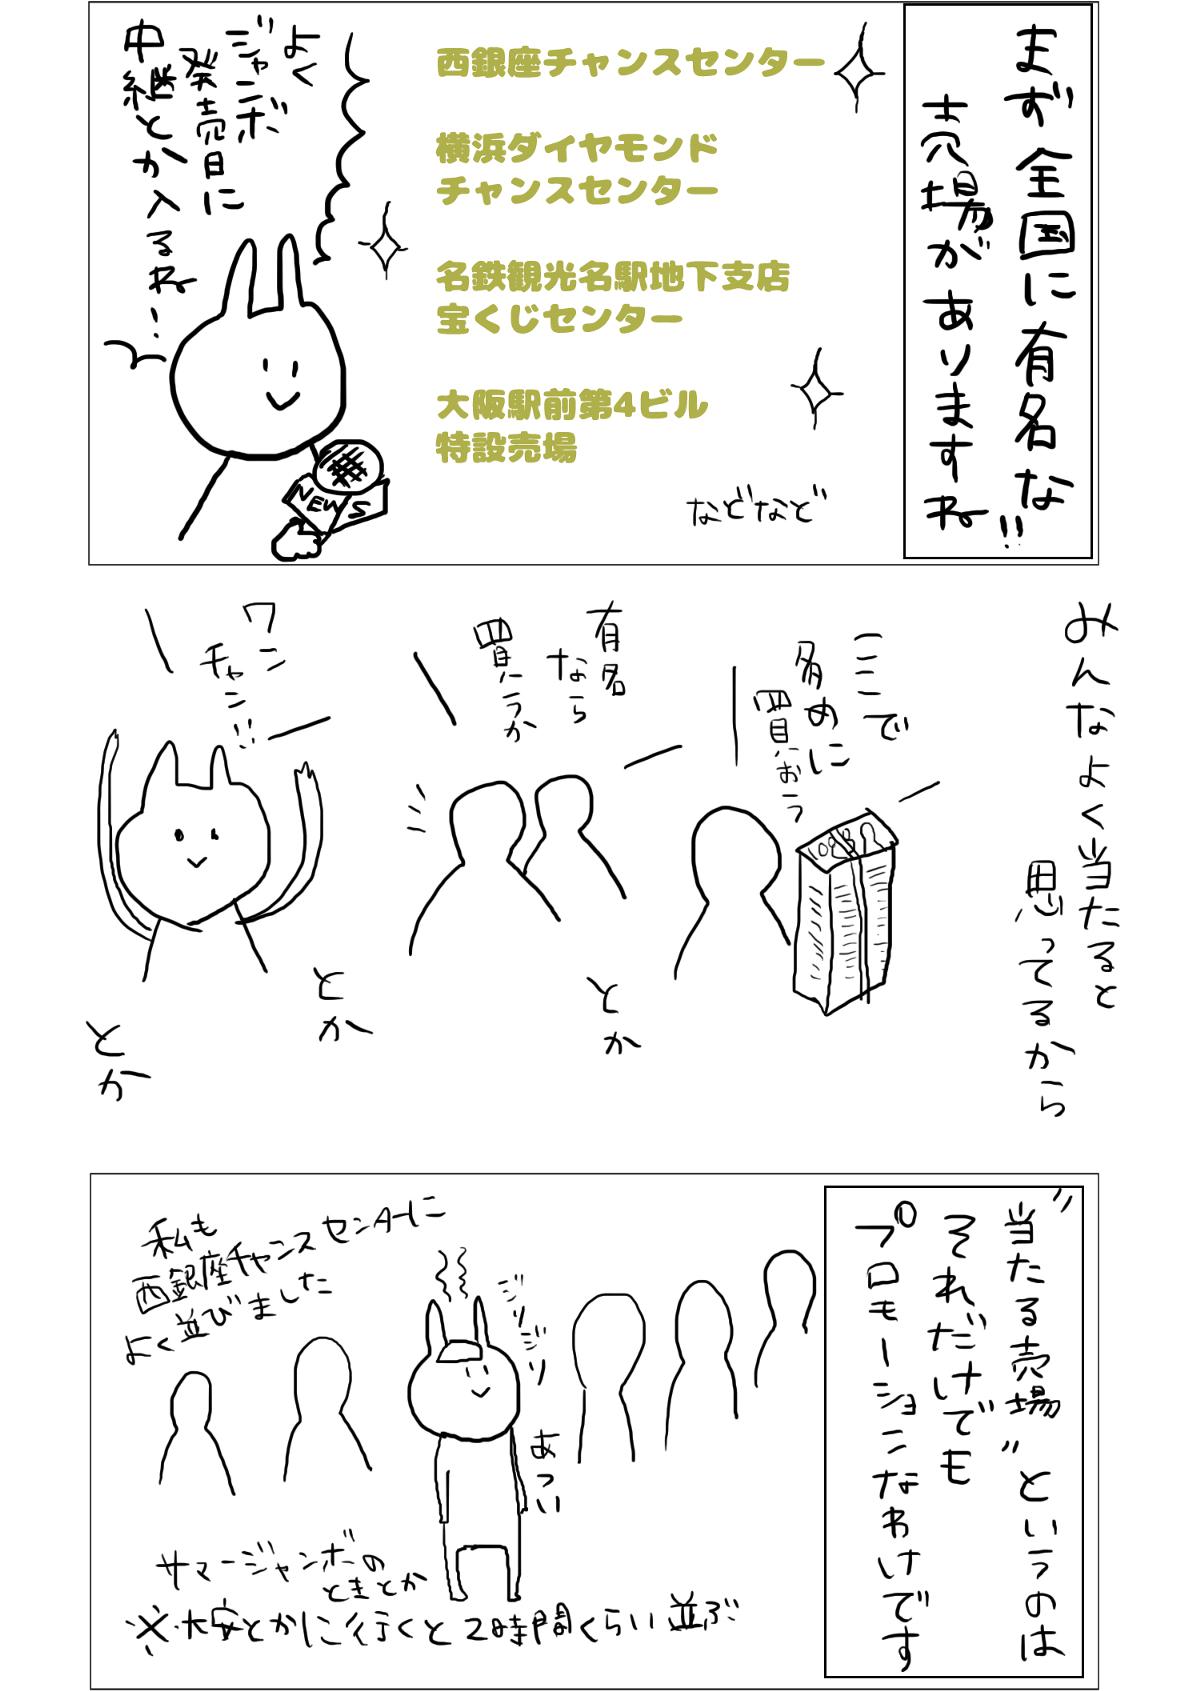 まず全国に有名な
売場がありますね!!
西銀座チャンスセンター
横浜ダイヤモンド
チャンスセンター
名鉄観光名駅地下支店
宝くじセンター
大阪駅前第4ビル
特設売場
などなど
よく
ジャンボ
発売日に
中継とか入るね!
NEWS
みんなよく当たると
思ってるから
ここで
多めに
買おう
とか
有名
なら
買うか
とか
ワン
チャン!!
とか
"当たる売場"というのは
それだけでも
プロモーションなわけです
ジリジリ
あつい
私も
西銀座チャンスセンターに
よく並びました
サマージャンボの
ときとか
※大安とかに行くと2時間くらい並ぶ